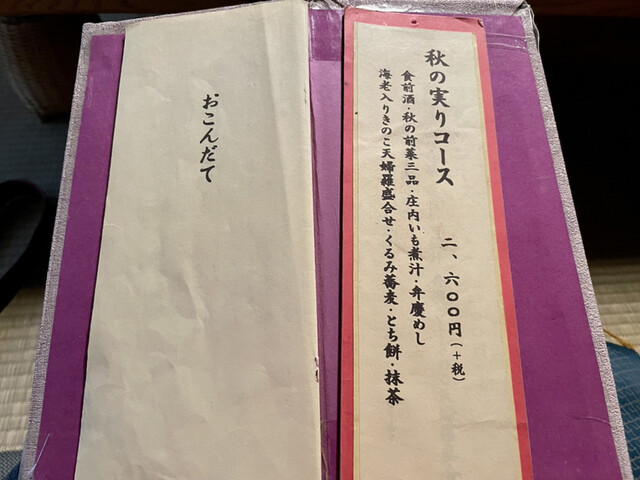 秋の実りコース
二、六〇〇円（＋税）
食前酒・秋の前菜三品・庄内いも煮汁・弁慶めし
海老入りきのこ天婦羅盛合せ・くるみ蕎麦・とち餅・抹茶
おこんだて